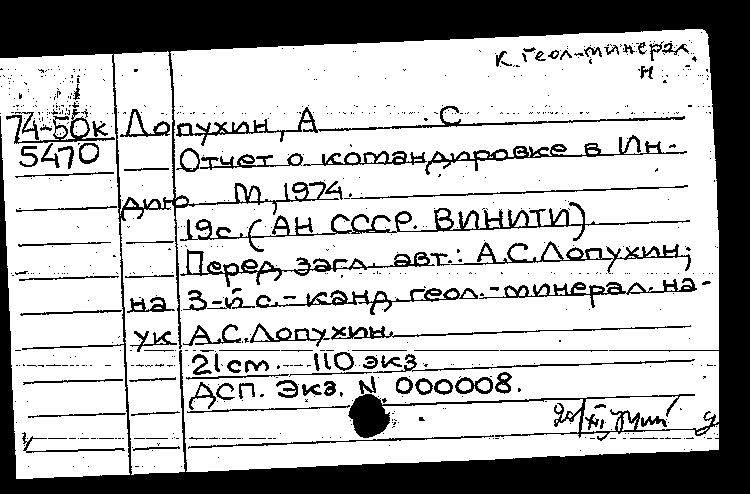 к геол-минерал.
н.
74-50к Лопухин, А С
5470 Отчет о командировке в Ин-
дию. М., 1974.
19с. (АН СССР. ВИНИТИ).
Перед загл. авт.: А.С.Лопухин;
на 3-й с.- канд. геол.-минерал. на-
ук А.С.Лопухин.
21 см. 110 экз.
ДСП. Экз. N 000008.
20/XII